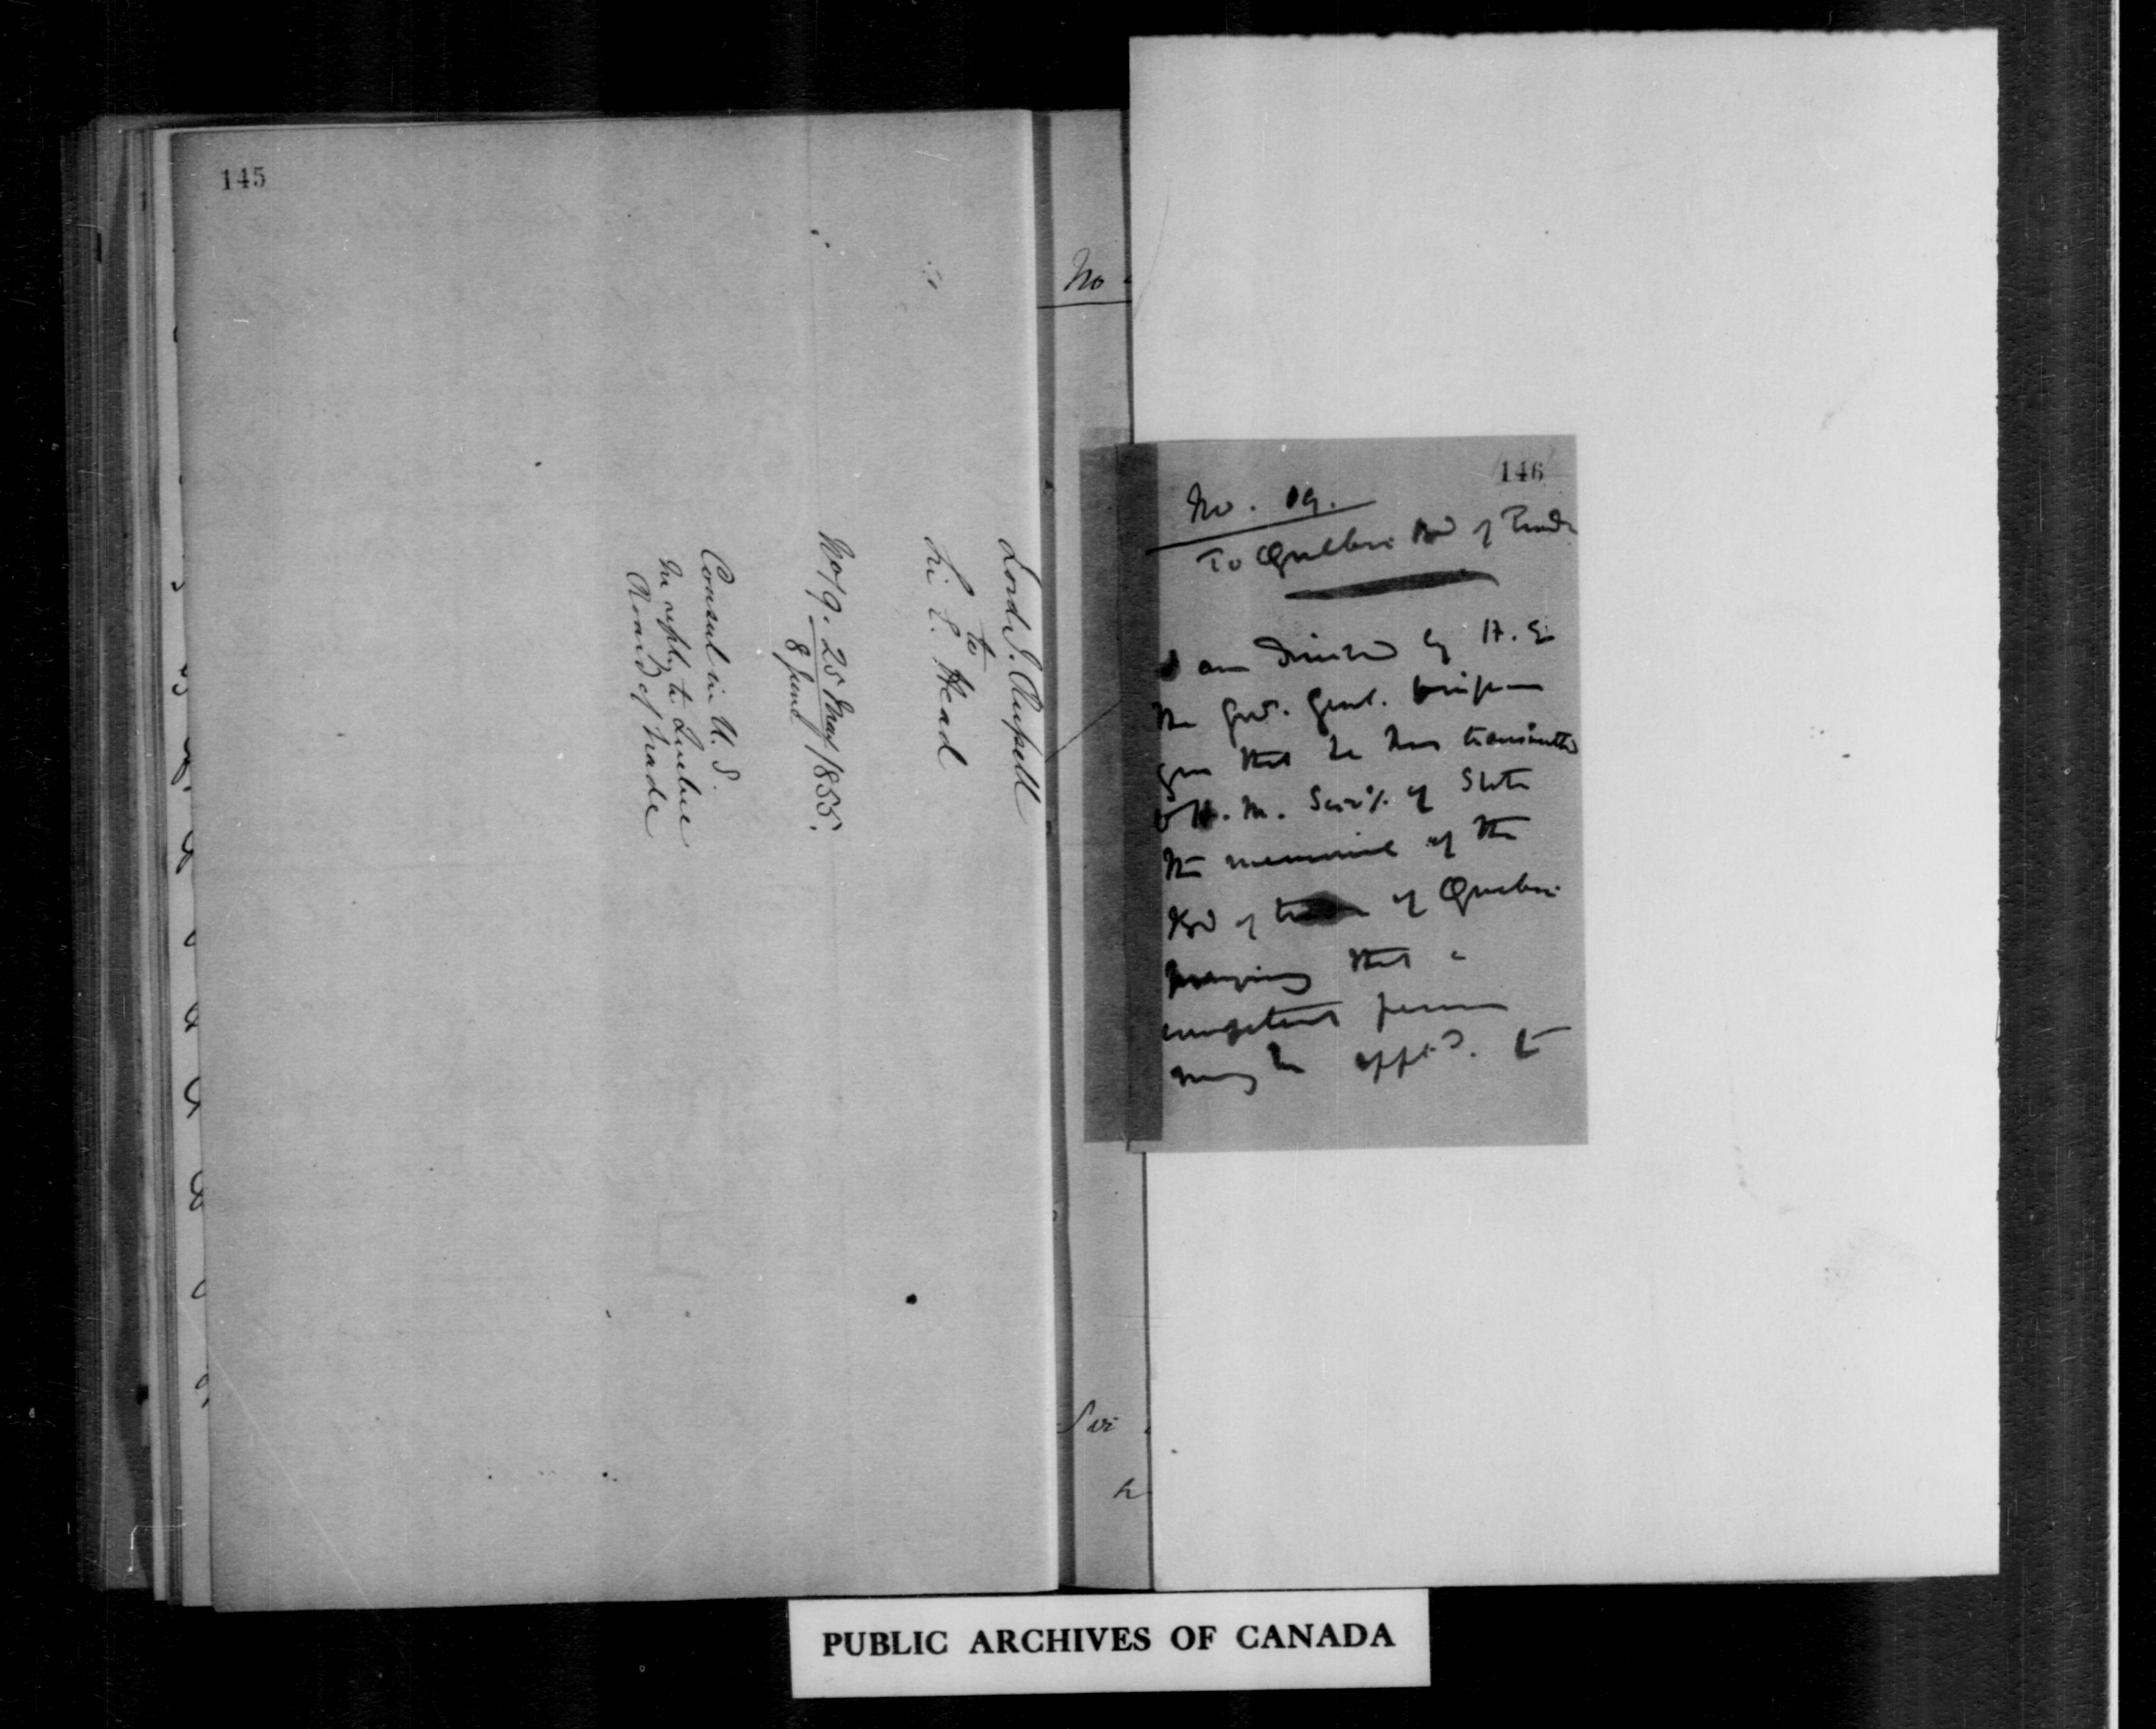 145
Lord J. Russell
to
Sir E. Head
No/9. 25 May/1855.
8 June
Consul in U. S.
In reply to Quebec
Board of Trade
No
Sir
146
No. 19.
To Quebec Bd of Trade
I am directed by H. E.
the Govr. Genl. to inform
you that he has transmitted
to H. M. Secry. of State
the memorial of the
Bd of trade of Quebec
praying that a
competent person
may be appd. to
PUBLIC ARCHIVES OF CANADA